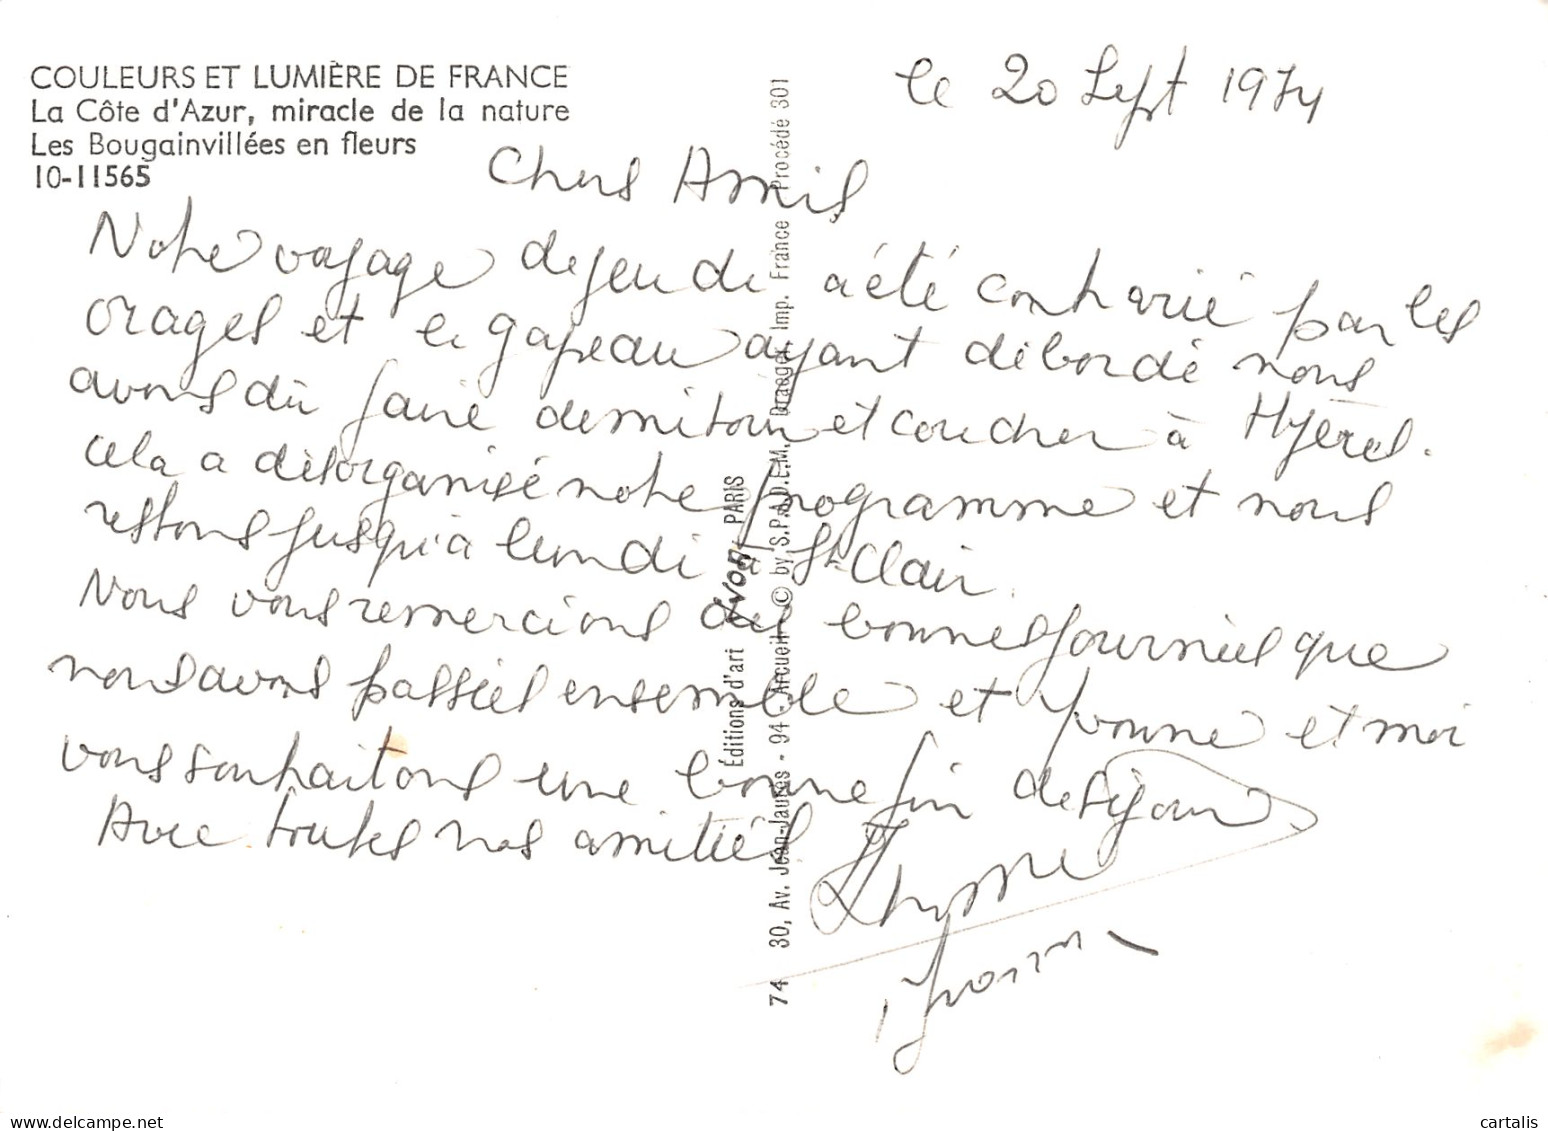 COULEURS ET LUMIÈRE DE FRANCE
La Côte d'Azur, miracle de la nature
Les Bougainvillées en fleurs
10-11565
le 20 Sept 1974
Chers Amis
Notre voyage de jeudi a été contrarié par les
orages et le gapeau ayant débordé nous
avons dû faire demi tour et coucher à Hyères.
cela a désorganisé notre programme et nous
restons jusqu'à lundi à St Clair.
Nous vous remercions des bonnes journées que
nous avons passées ensemble et Yvonne et moi
vous souhaitons une bonne fin de séjour
Avec toutes nos amitiés
Yvonne
Éditions d'art YVON PARIS
74 30, Av. Jean-Jaurès - 94 - Arcueil - © by S.P.A.D.E.M. Draeger, Imp. France Procédé 301
delcampe.net
cartalis